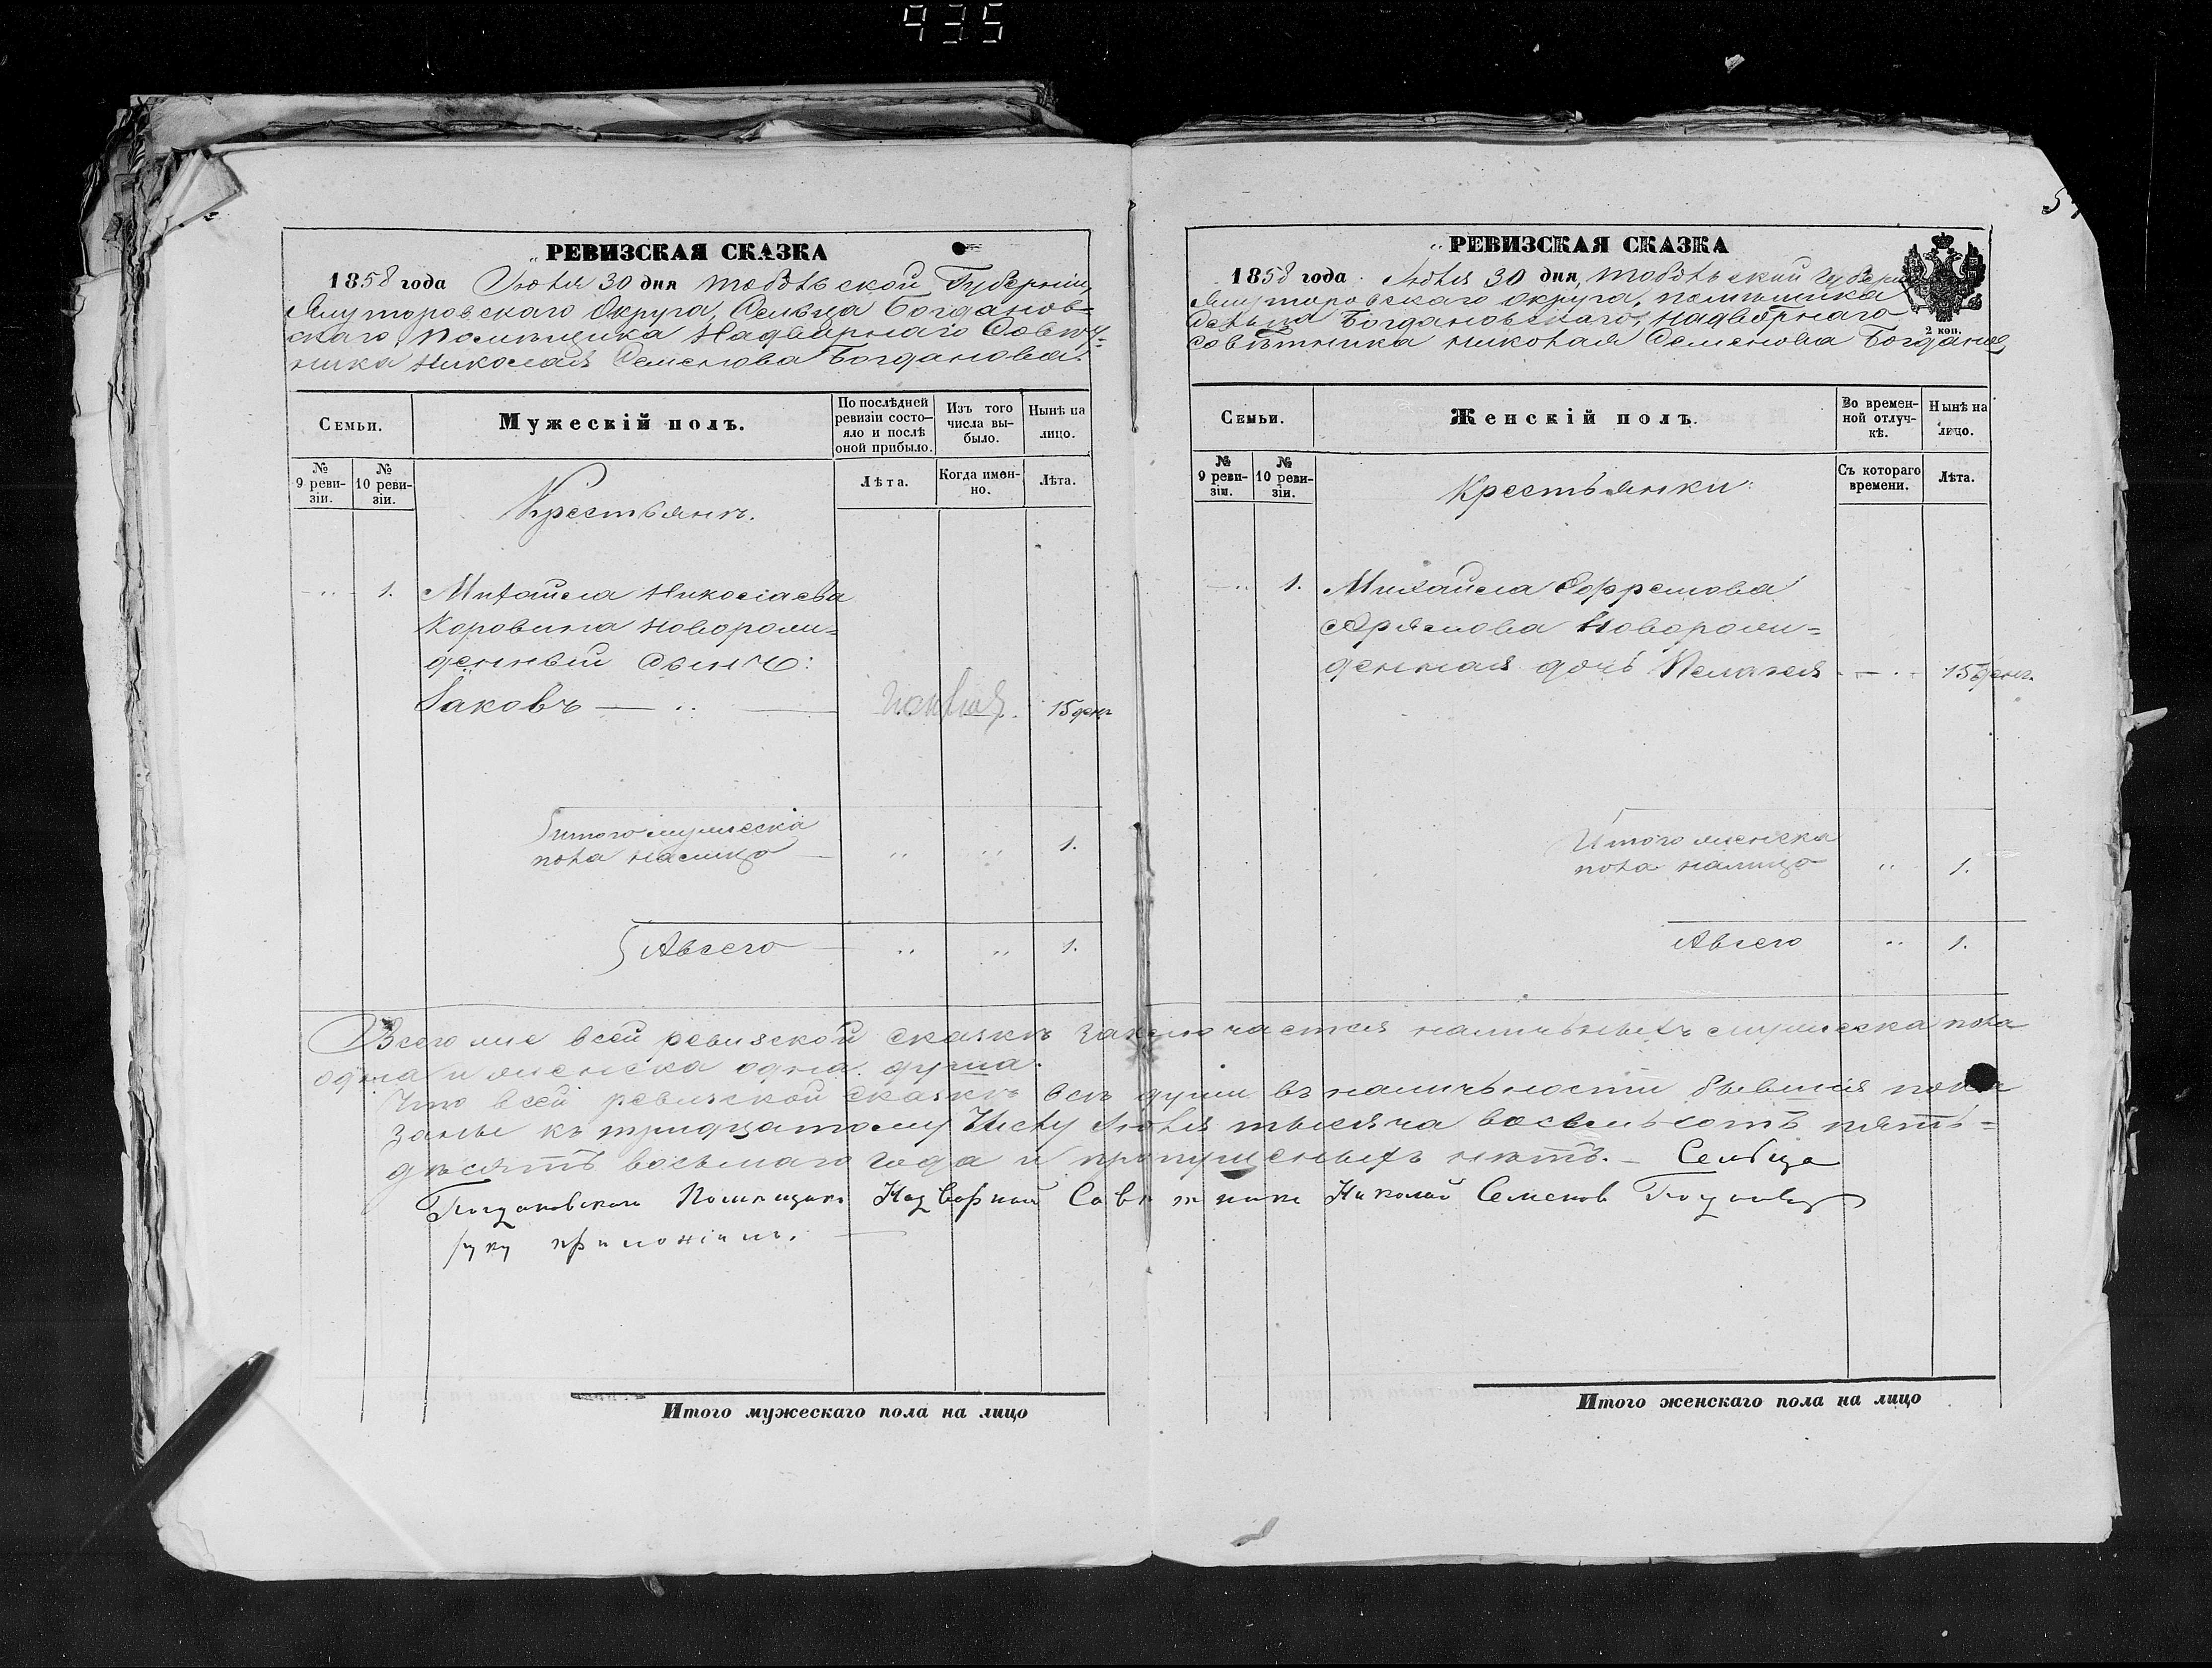 935
РЕВИЗСКАЯ СКАЗКА
1858 года Іюля 30 дня Тобольской Губерніи,
Ялуторовскаго Округа, Сельца Богданов=
скаго Помѣщика Надворнаго Совѣт=
ника Николая Семенова Богданова.
Семьи.
Мужескій полъ.
По послѣдней ревизіи состо-яло и послѣ оной прибыло.
Изъ того числа вы-было.
Нынѣ на лицо.
№ 9 реви-зіи.
№ 10 реви-зіи.
Крестьянъ.
Лѣта.
Когда имен-но.
Лѣта.
1. Михайла Николаева
Коровина Новорож=
денный сынъ:
Іаковъ — 15 ден.
Итого мужеска
пола налицо — „ „ 1.
Авсего — „ „ 1.
РЕВИЗСКАЯ СКАЗКА
1858 года Іюля 30 дня, Тобольской Губерн
Ялуторовскаго округа, помѣщика
Сельца Богдановскаго, надворнаго
совѣтника Николая Семенова Богданов
2 коп.
Семьи.
Женскій полъ.
Во времен-ной отлуч-кѣ.
Нынѣ на лицо.
№ 9 реви-зіи.
№ 10 реви-зіи.
Крестьянки:
Съ котораго времени.
Лѣта.
1. Михайла Ефремова
Новорож=
денная дочь Пелагея — 15 ден.
Итого женска
пола налицо „ 1.
Авсего „ 1.
Всего же всей ревизской сказкѣ заключается наличныхъ мужеска пола
одна и женска одна душа.
Что всей ревизской сказкѣ всѣ души въ наличьности бывшія пока
заны къ тридцатому Числу Іюля тысяча восемьсотъ пять=
десятъ восьмаго года и пропущеныхъ нѣтъ. — Сельца
Богдановскаго Помѣщикъ Надворный Совѣтникъ Николай Семенов Богданов
руку приложилъ.
Итого мужескаго пола на лицо
Итого женскаго пола на лицо